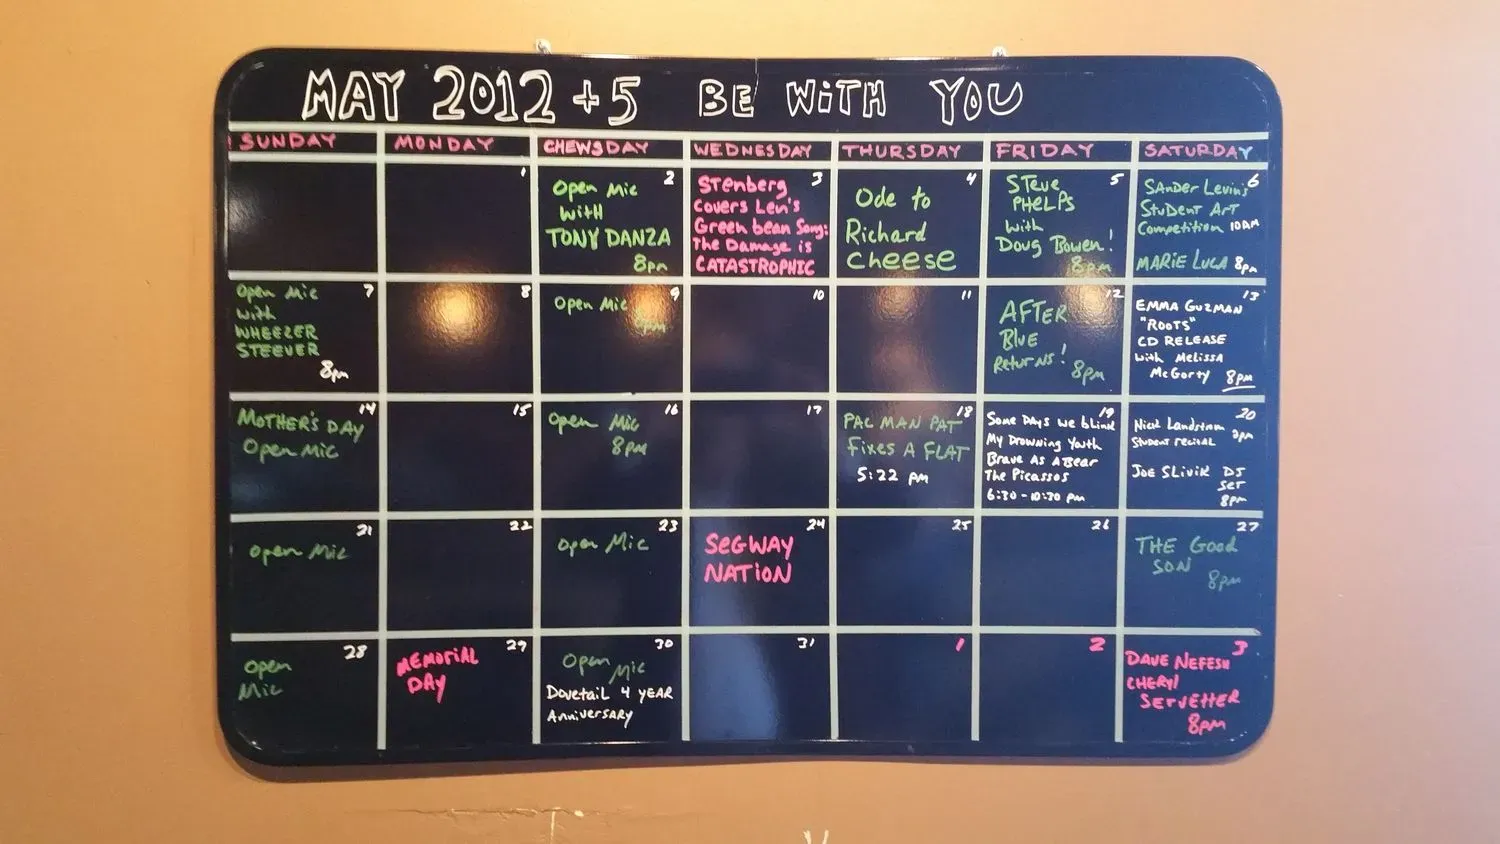 MAY 2012 + 5 BE WiTH YOU
SUNDAY MONDAY CHEWSDAY WEDNESDAY THURSDAY FRIDAY SATURDAY
1
2
Open Mic
WITH
TONY DANZA
8pm
3
STenberg
Covers Len's
Green bean Song:
The Damage is
CATASTROPHIC
4
Ode to
Richard
cheese
5
STeve
PHeLPS
with
Doug Bowen!
8pm
6
SAnDer Levin's
StuDent Art
Competition 10AM
MARiE LUCA 8pm
7
Open Mic
with
WHEEZER
STEEVER
8pm
8
9
Open Mic
8pm
10
11
12
AFTER
BLUE
Returns!
8pm
13
EMMA GUZMAN
"ROOTS"
CD RELEASE
with Melissa
McGorty 8pm
14
MOTHER'S DAY
Open Mic
15
16
Open Mic
8pm
17
18
PAC MAN PAT
fixes A FLAT
5:22 pm
19
Some DAYS we blind
My Drowning Youth
Brave As A Bear
The Picassos
6:30 - 10:30 pm
20
Nick Landstrom
Student recital
JOE SLiViK DJ
SeT
8pm
21
Open Mic
22
23
Open Mic
24
SeGWAY
NATiON
25
26
27
THE Good
SON
8pm
28
Open
Mic
29
MEMORiAL
DAY
30
Open
Mic
Dovetail 4 YEAR
Anniversary
31
1
2
3
DAVE NEFESH
CHERYl
SERVETTER
8pm